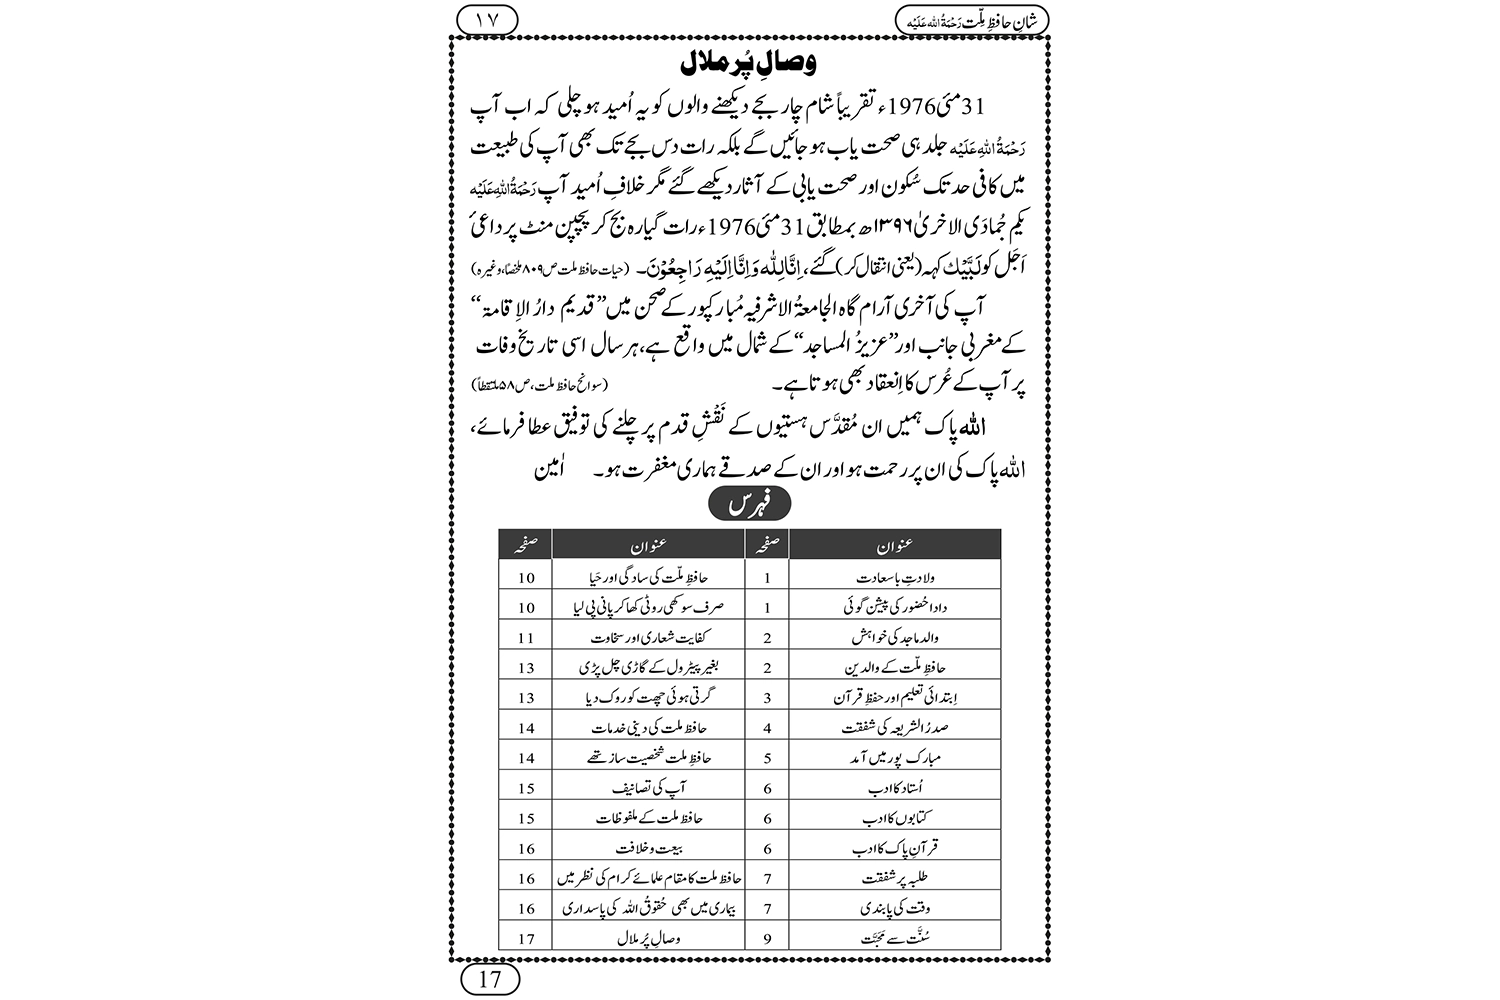 شانِ حافظِ ملّت رَحْمَۃُ اللہ عَلَیْہ
۱۷
وصالِ پُر ملال
31 مئی 1976ء تقریباً شام چار بجے دیکھنے والوں کو یہ اُمید ہو چلی کہ اب آپ
رَحْمَۃُ اللہِ عَلَیْہ جلد ہی صحت یاب ہو جائیں گے بلکہ رات دس بجے تک بھی آپ کی طبیعت
میں کافی حد تک سُکون اور صحت یابی کے آثار دیکھے گئے مگر خلافِ اُمید آپ رَحْمَۃُ اللہِ عَلَیْہ
یکم جُمادَی الاخریٰ ۱۳۹۶ھ بمطابق 31 مئی 1976ء رات گیارہ بج کر پچپن منٹ پر داعیٔ
اَجَل کو لَبَّیْک کہہ (یعنی انتقال کر) گئے، اِنَّالِلّٰہ وَاِنَّا اِلَیْہِ رَاجِعُوْنَ۔ (حیات حافظ ملت ص ۸۰۹ ملخصاً، وغیرہ)
آپ کی آخری آرام گاہ الجامعۃُ الاشرفیہ مُبارکپور کے صحن میں ”قدیم دارُ الاِقامۃ“
کے مغربی جانب اور ”عزیزُ المساجد“ کے شمال میں واقع ہے، ہر سال اسی تاریخِ وفات
پر آپ کے عُرس کا اِنعقاد بھی ہوتا ہے۔ (سوانح حافظ ملت، ص ۵۸ ملتقطاً)
اللہ پاک ہمیں ان مُقدَّس ہستیوں کے نَقْشِ قدم پر چلنے کی توفیق عطا فرمائے،
اللہ پاک کی ان پر رحمت ہو اور ان کے صدقے ہماری مغفرت ہو۔ اٰمین
فہرس
عنوان صفحہ عنوان صفحہ
ولادتِ باسعادت 1 حافظِ ملّت کی سادگی اور حَیا 10
دادا حُضور کی پیشن گوئی 1 صرف سوکھی روٹی کھا کر پانی پی لیا 10
والد ماجد کی خواہش 2 کفایت شعاری اور سخاوت 11
حافظِ ملّت کے والدین 2 بغیر پیٹرول کے گاڑی چل پڑی 13
اِبتدائی تعلیم اور حفظِ قرآن 3 گرتی ہوئی چھت کو روک دیا 13
صدرُ الشریعہ کی شفقت 4 حافظ ملت کی دینی خدمات 14
مبارک پور میں آمد 5 حافظِ ملت شخصیت ساز تھے 14
اُستاد کا ادب 6 آپ کی تصانیف 15
کتابوں کا ادب 6 حافظ ملت کے ملفوظات 15
قرآنِ پاک کا ادب 6 بیعت و خلافت 16
طلبہ پر شفقت 7 حافظ ملت کا مقام علمائے کرام کی نظر میں 16
وقت کی پابندی 7 بیماری میں بھی حُقوقُ اللہ کی پاسداری 16
سُنَّت سے مَحَبَّت 9 وصالِ پُر ملال 17
17